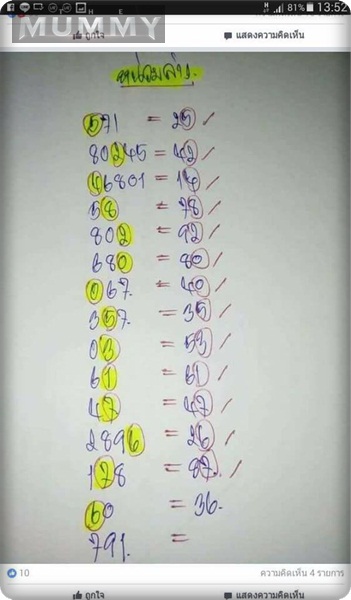 THE MUMMY
81% 13:52
ถูกใจ แสดงความคิดเห็น
หน่วยล่าง.
571 = 25 /
80245 = 42 /
46801 = 14 /
58 = 78 /
802 = 92 /
680 = 80 /
067. = 40 /
357. = 35 /
03 = 53 /
61 = 61 /
47 = 47 /
2896 = 26 /
178 = 87. /
60 = 36.
791. =
10 ความคิดเห็น 4 รายการ
ถูกใจ แสดงความคิดเห็น